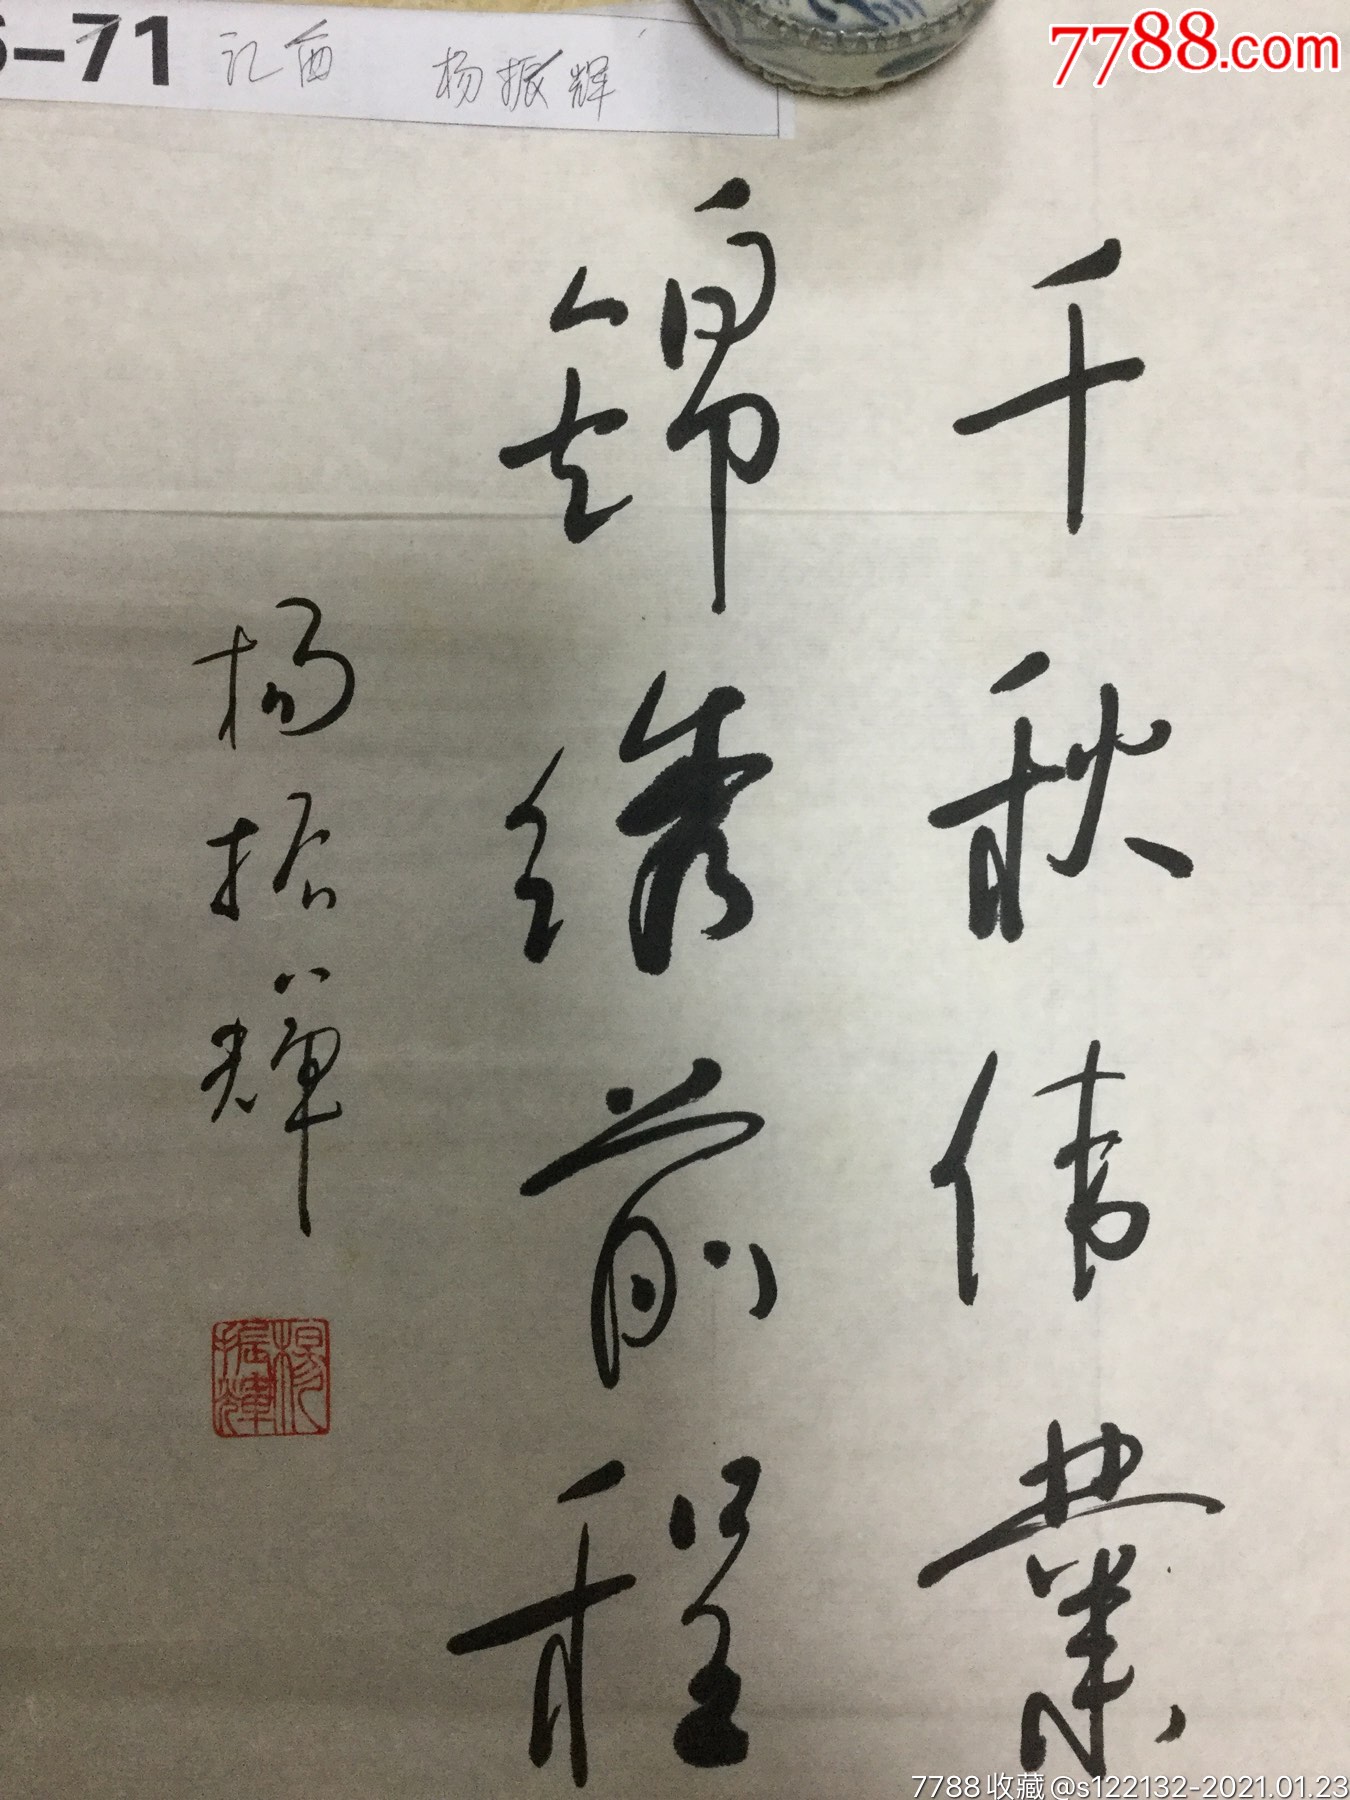 6-71 江西 杨振辉
7788.com
千秋伟業
锦绣前程
杨振輝
楊振輝
7788收藏@s122132-2021.01.23